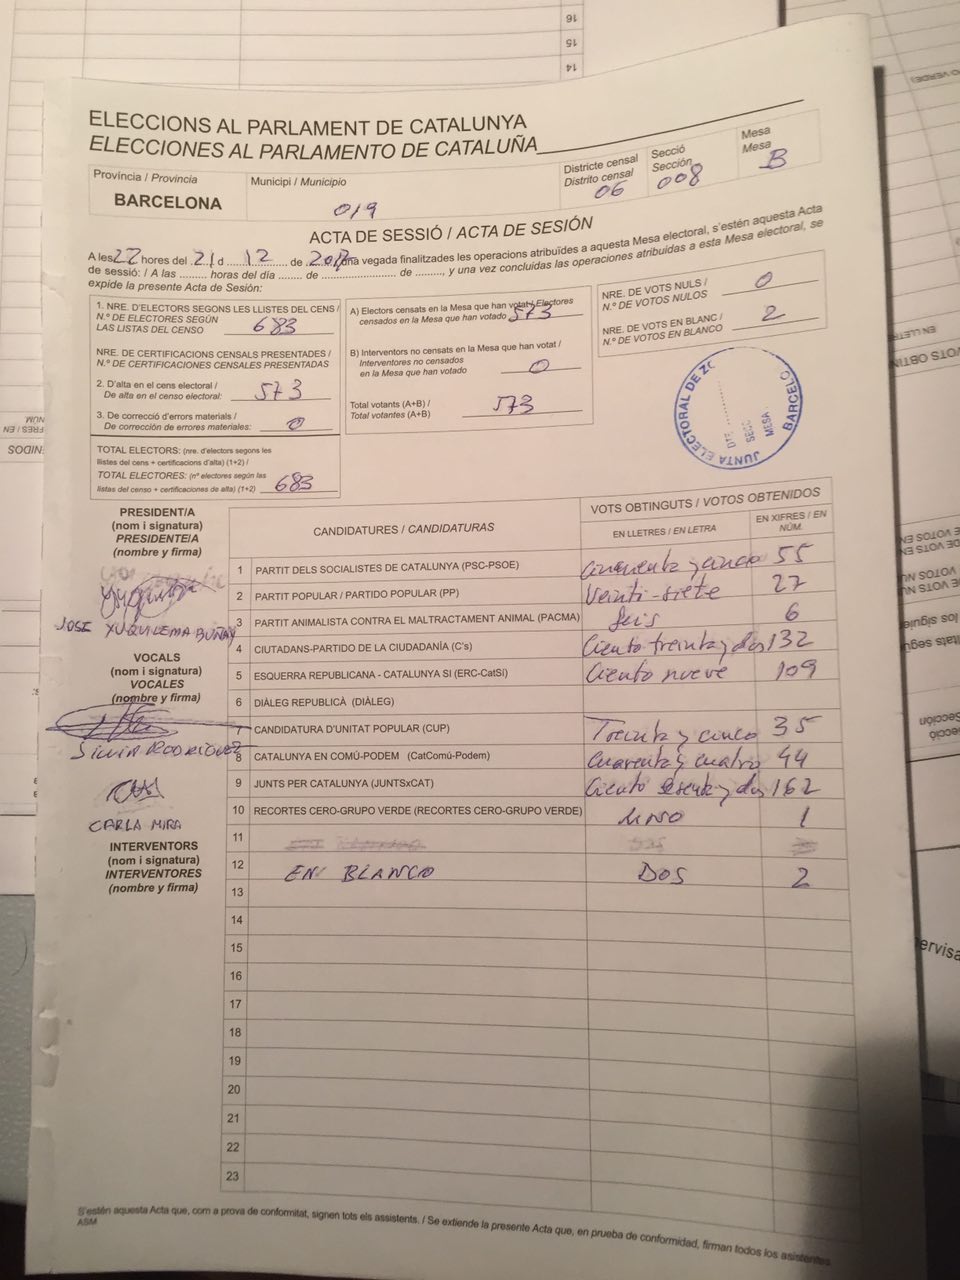 16
15
14
ELECCIONS AL PARLAMENT DE CATALUNYA
ELECCIONES AL PARLAMENTO DE CATALUÑA
Província / Provincia
BARCELONA
Municipi / Municipio
019
Districte censal
Distrito censal
06
Secció
Sección
008
Mesa
Mesa
B
ACTA DE SESSIÓ / ACTA DE SESIÓN
A les 22 hores del 21 d 12 de 2017 una vegada finalitzades les operacions atribuïdes a aquesta Mesa electoral, s'estén aquesta Acta
de sessió: / A las ......... horas del día ....... de ..................... de ........, y una vez concluídas las operaciones atribuidas a esta Mesa electoral, se
expide la presente Acta de Sesión:
1. NRE. D'ELECTORS SEGONS LES LLISTES DEL CENS /
N.º DE ELECTORES SEGÚN
LAS LISTAS DEL CENSO 683
NRE. DE CERTIFICACIONS CENSALS PRESENTADES /
N.º DE CERTIFICACIONES CENSALES PRESENTADAS
2. D'alta en el cens electoral /
De alta en el censo electoral: 573
3. De correcció d'errors materials /
De corrección de errores materiales: 0
TOTAL ELECTORS: (nre. d'electors segons les
llistes del cens + certificacions d'alta) (1+2) /
TOTAL ELECTORES: (nº electores según las
listas del censo + certificaciones de alta) (1+2) 683
A) Electors censats en la Mesa que han votat / Electores
censados en la Mesa que han votado 573
B) Interventors no censats en la Mesa que han votat /
Interventores no censados
en la Mesa que han votado 0
Total votants (A+B) /
Total votantes (A+B) 573
NRE. DE VOTS NULS /
N.º DE VOTOS NULOS 0
NRE. DE VOTS EN BLANC /
N.º DE VOTOS EN BLANCO 2
JUNTA ELECTORAL DE ZO
BARCELO
DTE
SECC
MESA
PRESIDENT/A
(nom i signatura)
PRESIDENTE/A
(nombre y firma)
JOSE YUQUILEMA BUÑAY
VOCALS
(nom i signatura)
VOCALES
(nombre y firma)
SILVIA RODRIGUEZ
CARLA MIRA
INTERVENTORS
(nom i signatura)
INTERVENTORES
(nombre y firma)
CANDIDATURES / CANDIDATURAS
VOTS OBTINGUTS / VOTOS OBTENIDOS
EN LLETRES / EN LETRA
EN XIFRES / EN NÚM.
1 PARTIT DELS SOCIALISTES DE CATALUNYA (PSC-PSOE) Cinquenta y cinco 55
2 PARTIT POPULAR / PARTIDO POPULAR (PP) Veinti-siete 27
3 PARTIT ANIMALISTA CONTRA EL MALTRACTAMENT ANIMAL (PACMA) Seis 6
4 CIUTADANS-PARTIDO DE LA CIUDADANÍA (C's) Ciento treinta y dos 132
5 ESQUERRA REPUBLICANA - CATALUNYA SI (ERC-CatSí) Ciento nueve 109
6 DIÀLEG REPUBLICÀ (DIÀLEG)
7 CANDIDATURA D'UNITAT POPULAR (CUP) Treinta y cinco 35
8 CATALUNYA EN COMÚ-PODEM (CatComú-Podem) Cuarenta y cuatro 44
9 JUNTS PER CATALUNYA (JUNTSxCAT) Ciento sesenta y dos 162
10 RECORTES CERO-GRUPO VERDE (RECORTES CERO-GRUPO VERDE) UNO 1
11
12 EN BLANCO DOS 2
13
14
15
16
17
18
19
20
21
22
23
S'estén aquesta Acta que, com a prova de conformitat, signen tots els assistents. / Se extiende la presente Acta que, en prueba de conformidad, firman todos los asistentes
ASM